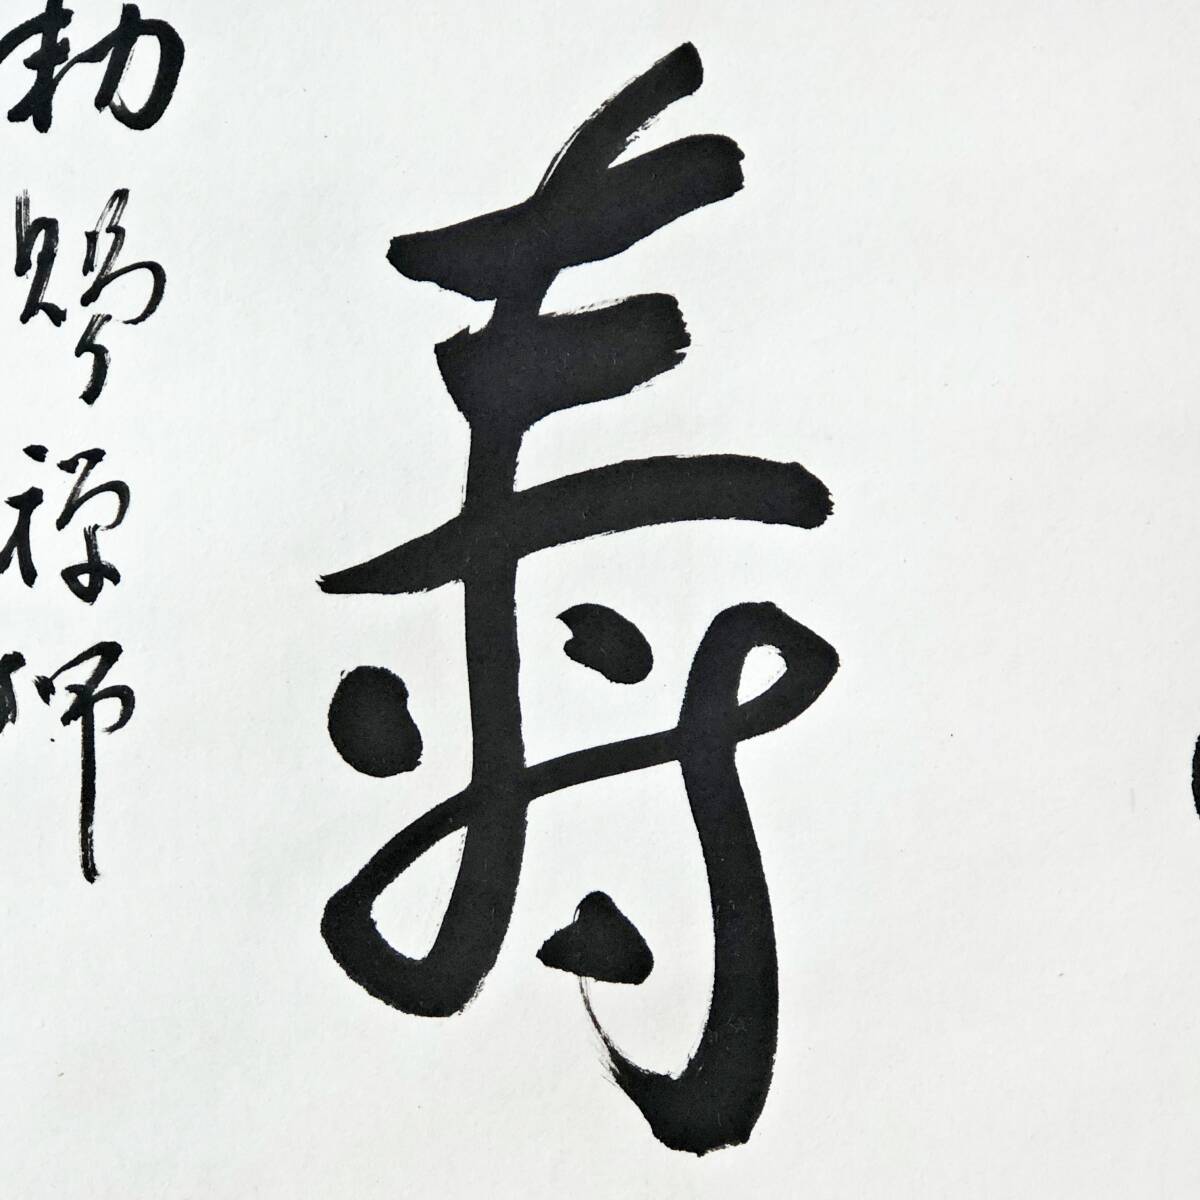 壽
勅賜禅師